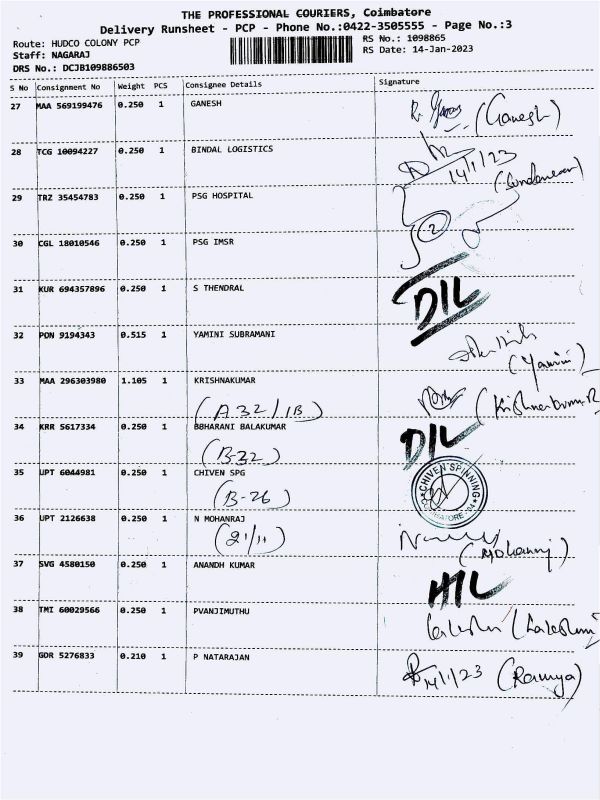 THE PROFESSIONAL COURIERS, Coimbatore
Delivery Runsheet - PCP - Phone No.:0422-3505555 - Page No.:3
Route: HUDCO COLONY PCP
RS No.: 1098865
Staff: NAGARAJ
RS Date: 14-Jan-2023
DRS No.: DCJB109886503
S No Consignment No Weight PCS Consignee Details Signature
27 MAA 569199476 0.250 1 GANESH
(Ganesh)
28 TCG 10094227 0.250 1 BINDAL LOGISTICS
14/1/23
29 TRZ 35454783 0.250 1 PSG HOSPITAL
2
30 CGL 18010546 0.250 1 PSG IMSR
31 KUR 694357896 0.250 1 S THENDRAL
DIL
32 PON 9194343 0.515 1 YAMINI SUBRAMANI
(Yamini)
33 MAA 296303980 1.105 1 KRISHNAKUMAR
(A32/1B)
34 KRR 5617334 0.250 1 BBHARANI BALAKUMAR
(B-32) DIL
35 UPT 6044981 0.250 1 CHIVEN SPG
(B-26) CHIVEN SPINNING
36 UPT 2126638 0.250 1 N MOHANRAJ
(21/11) (Mohanraj)
37 SVG 4580150 0.250 1 ANANDH KUMAR
HIL
38 TMI 60029566 0.250 1 PVANJIMUTHU
39 GDR 5276833 0.210 1 P NATARAJAN
14/1/23 (Ramya)